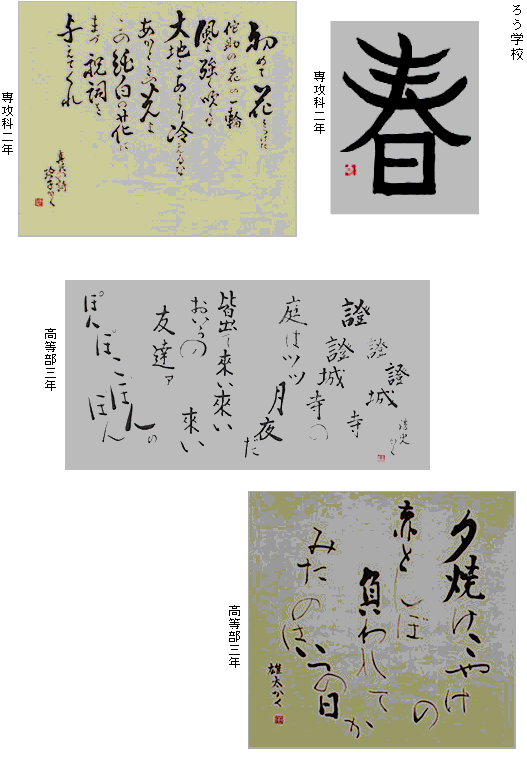 ろう学校
春
専攻科二年
初めて花をつけた
侘助の花の一輪
風は強く吹くな
大地はあまり冷えるな
あかときの光よ
この純白の花に
まづ祝詞を
与えてくれ
専攻科二年
證
證
證城
寺
證城
寺の
庭はツツ
月夜だ
皆出て来い来い
おいらの
来い
友達ァ
ぽんぽこぽんの
ぽん
高等部三年
夕焼けこやけの
赤とんぼ
負われて
みたのはいつの日か
雄太かく
高等部三年